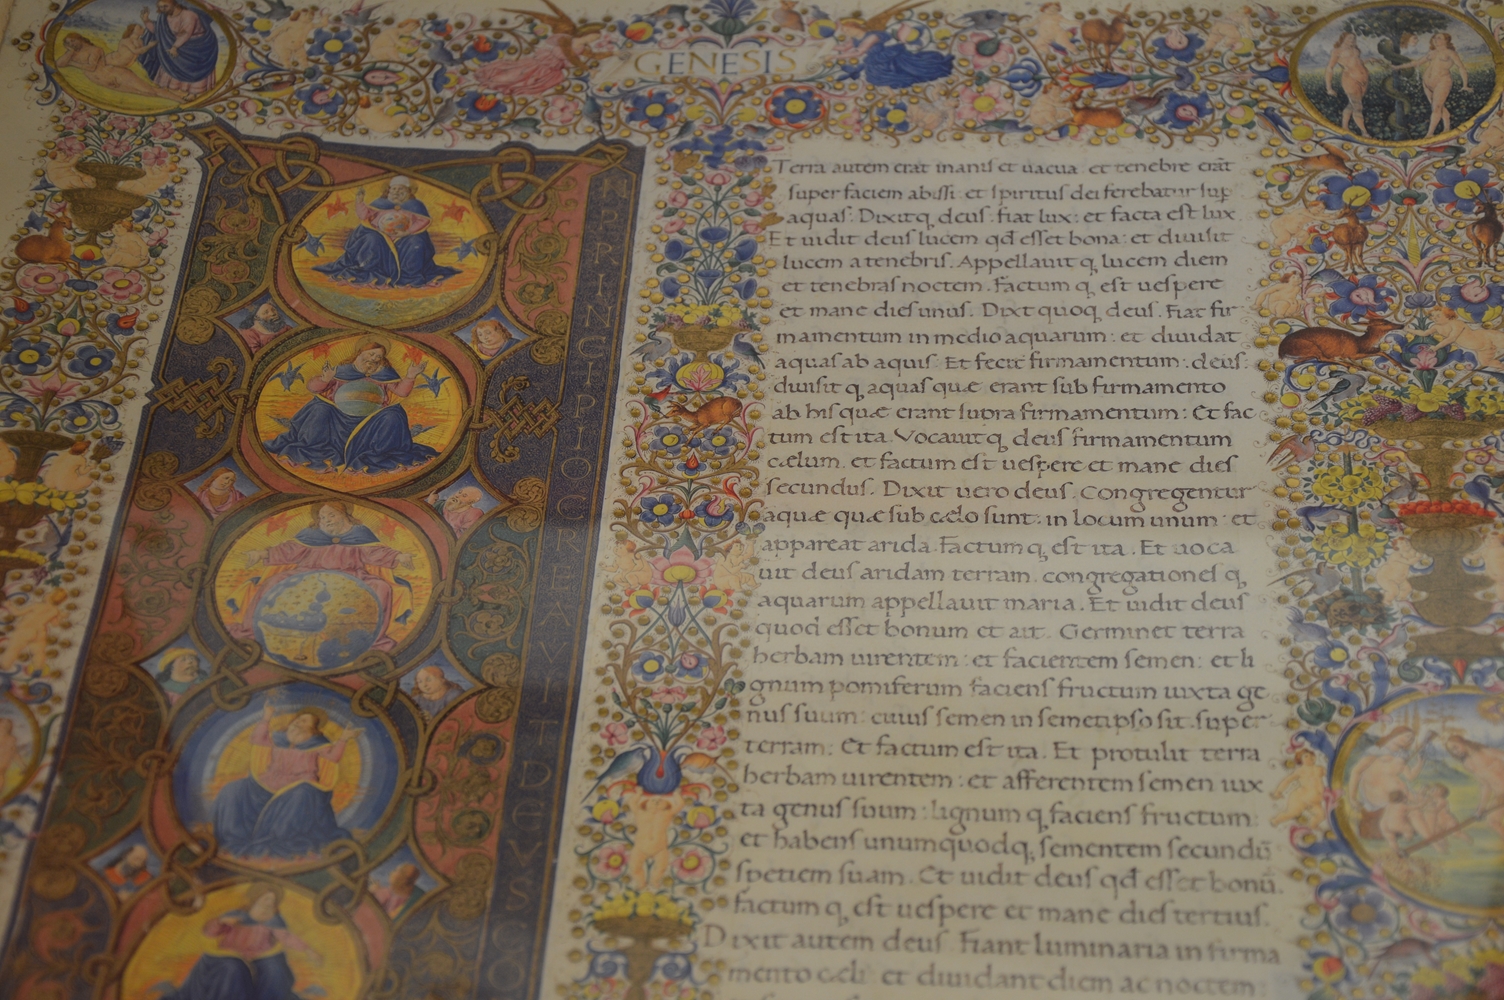 GENESIS
N PRINCIPIO CREAVIT DEVS CO
Terra autem erat inanis et uacua: et tenebre erāt
super faciem abissi: et spiritus dei ferebatur sup̱
aquas. Dixitq, deus: fiat lux: et facta est lux.
Et uidit deus lucem qđ esset bona: et diuisit
lucem a tenebris. Appellauit q, lucem diem
et tenebras noctem. Factum q, est uespere
et mane dies unus. Dixt quoq, deus. Fiat fir
mamentum in medio aquarum: et diuidat
aquas ab aquis. Et fecit firmamentum: deus.
diuisit q, aquas quæ erant sub firmamento
ab his quæ erant supra firmamentum: Et fac
tum est ita. Vocauitq, deus firmamentum
cælum. et factum est uespere et mane dies
secundus. Dixit uero deus. Congregentur
aquæ quæ sub cælo sunt: in locum unum: et
appareat arida. Factum q, est ita. Et uoca
uit deus aridam terram. congregationes q,
aquarum appellauit maria. Et uidit deus
quod esset bonum et ait. Germinet terra
herbam uirentem: et facientem semen: et li
gnum pomiferum faciens fructum iuxta ge
nus suum: cuius semen in semetipso sit. super
terram: Et factum est ita. Et protulit terra
herbam uirentem: et afferentem semen iux
ta genus suum: lignum q, faciens fructum:
et habens unumquodq, sementem secundū
spetiem suam. Et uidit deus qđ esset bonū.
factum q, est uespere et mane dies tertius.
Dixit autem deus. Fiant luminaria in firma
mento cæli et diuidant diem ac noctem: